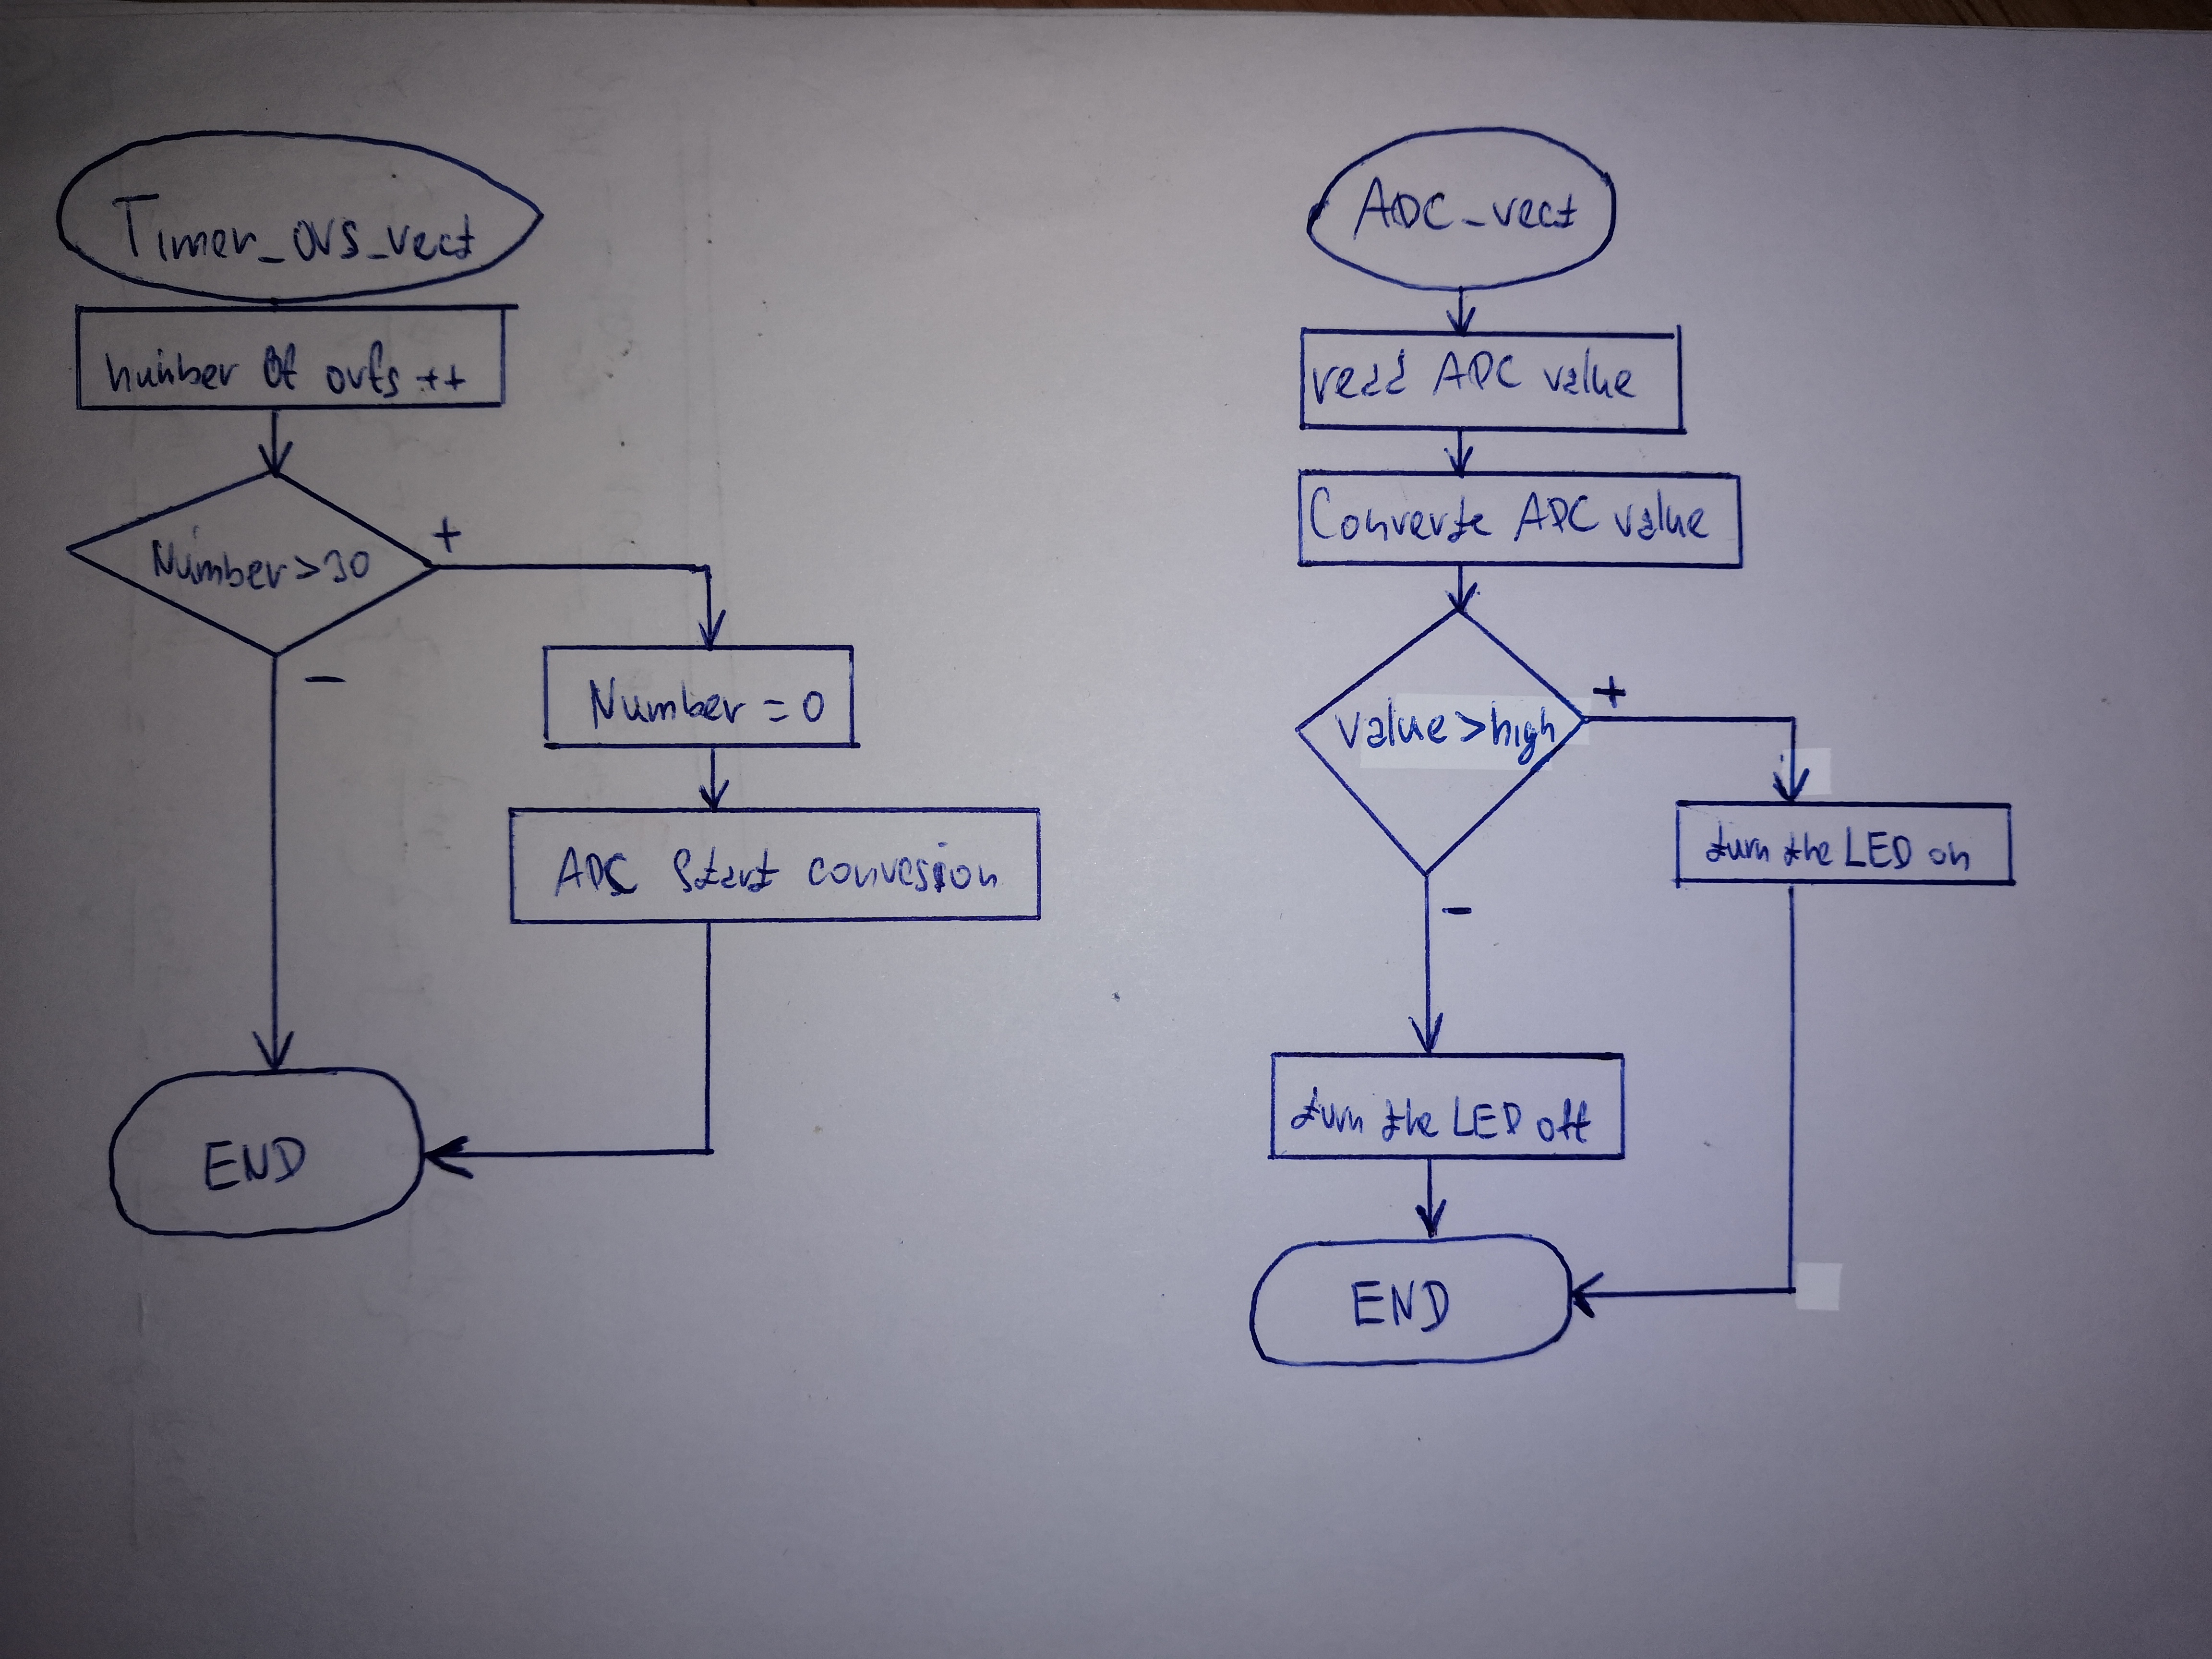 Timer_ovs_vect
number of ovfs ++
Number>30
+
-
Number = 0
ADC Start convesion
END
ADC_vect
read ADC value
Converte ADC value
Value >high
+
-
turn the LED on
turn the LED off
END